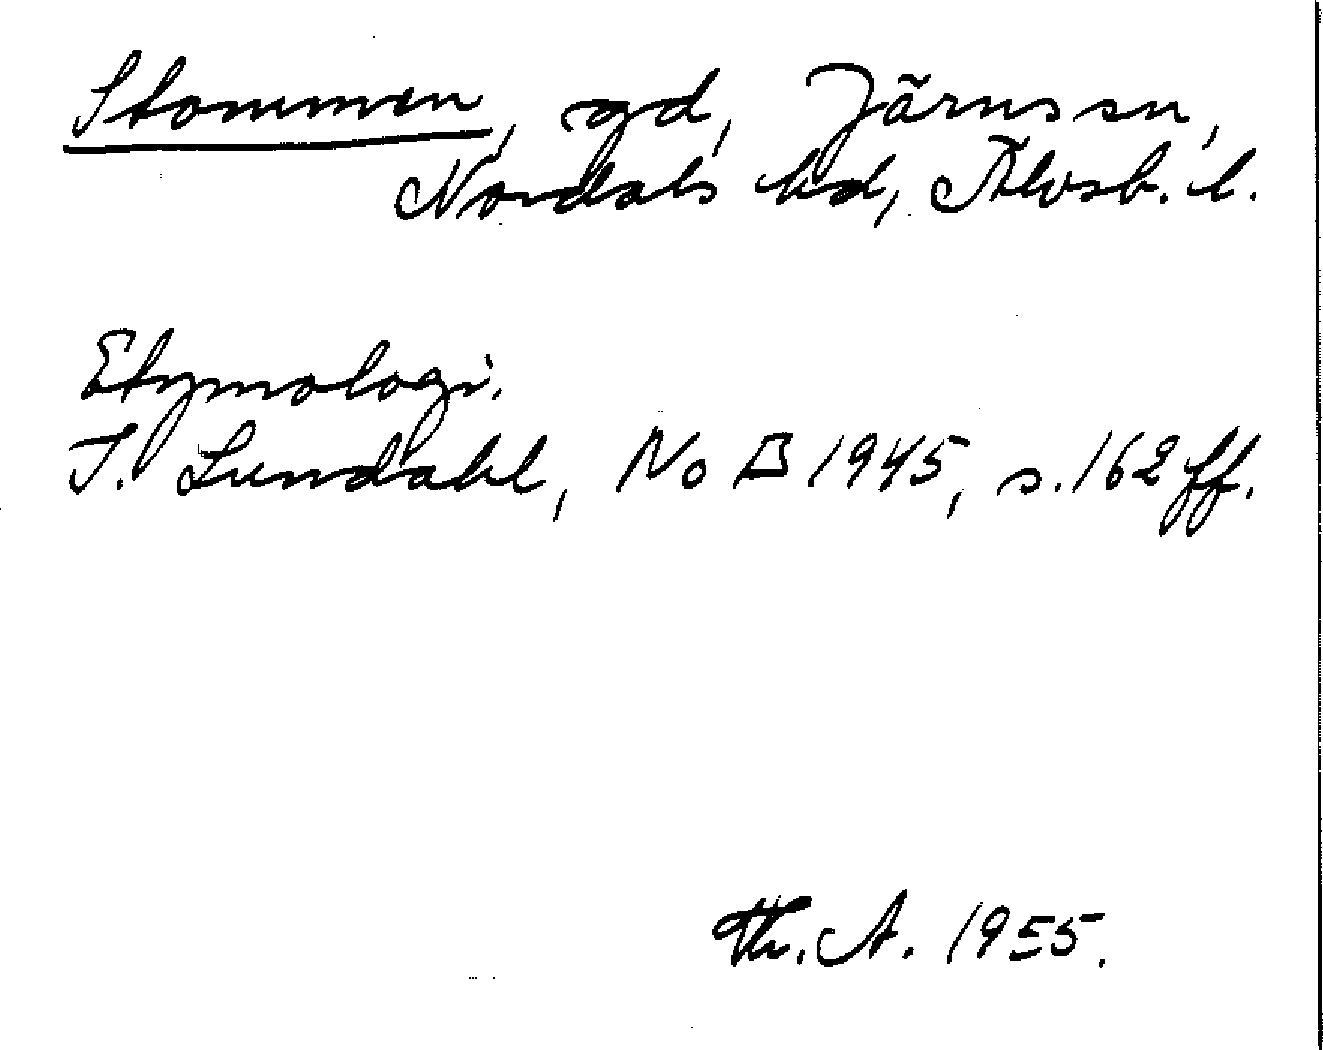 Stommen, gd, Järns sn,
Nordals hd, Älvsb. l.
Etymologi.
I. Lundahl, NoB 1945, s. 162 ff.
Th. A. 1955.